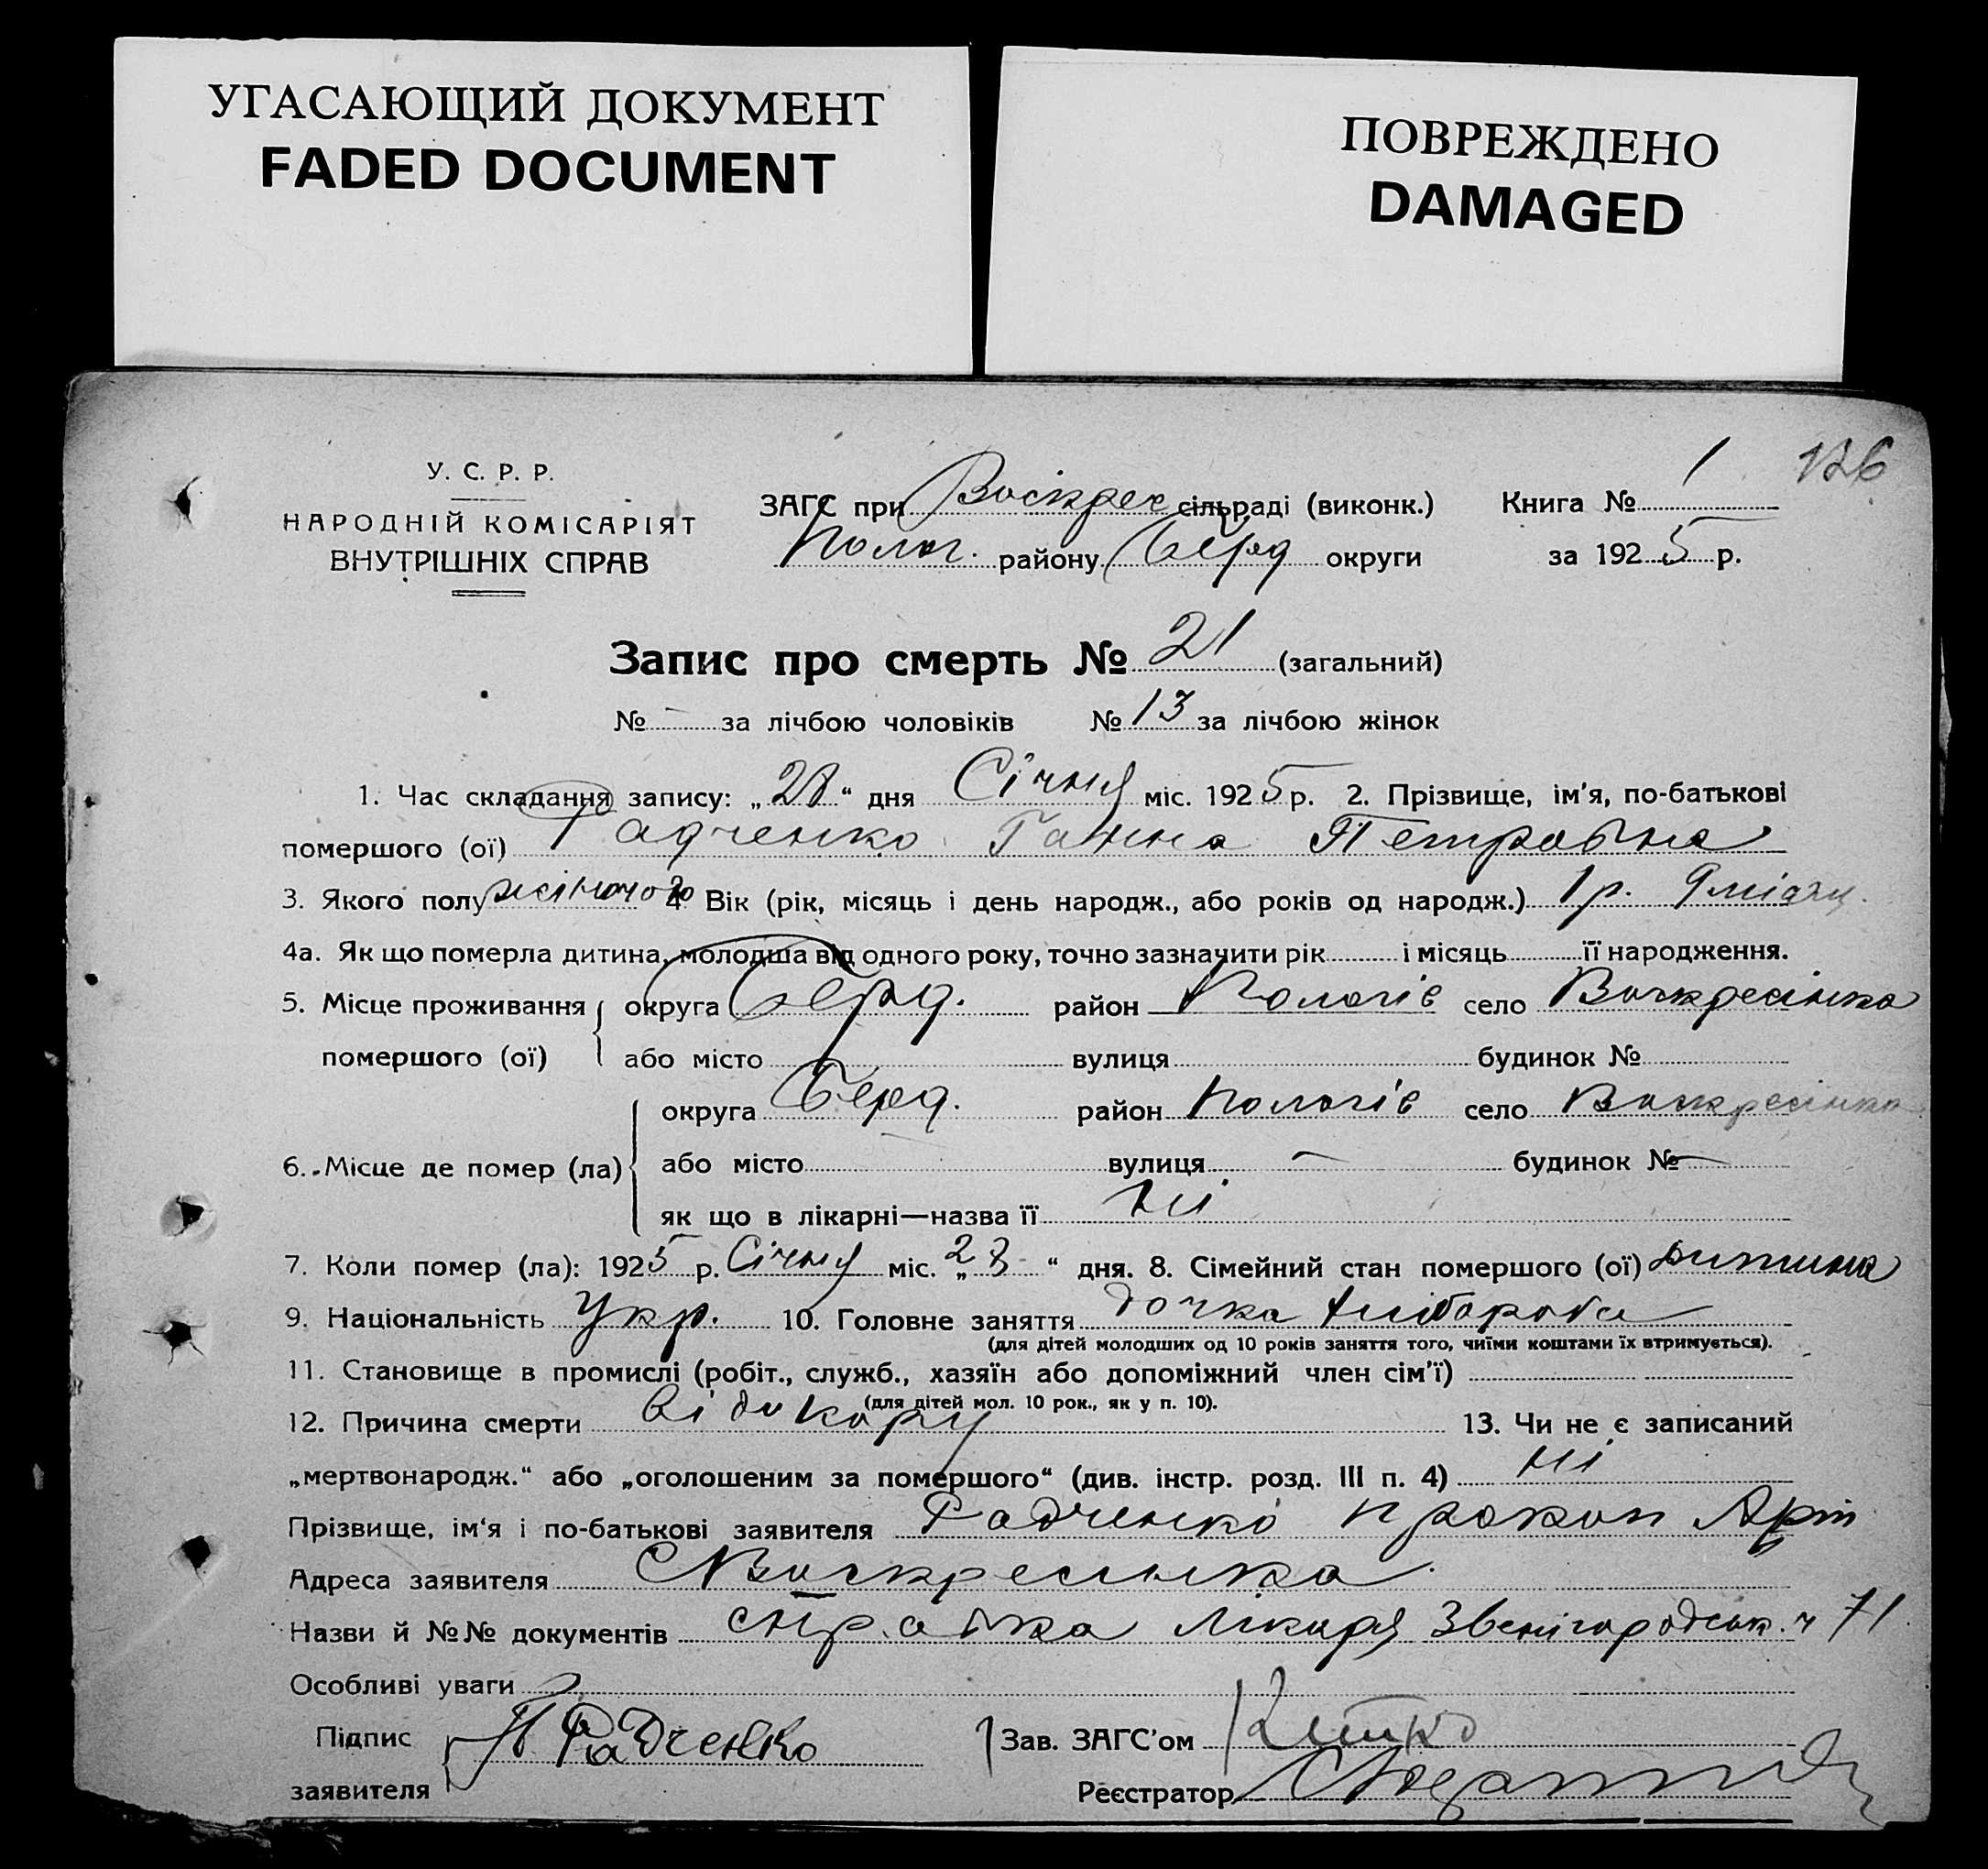 УГАСАЮЩИЙ ДОКУМЕНТ
FADED DOCUMENT
ПОВРЕЖДЕНО
DAMAGED
126
У. С. Р. Р.
НАРОДНІЙ КОМІСАРІЯТ
ВНУТРІШНІХ СПРАВ
ЗАГС при Воскрес сільраді (виконк.)
Полог. району Берд округи
Книга № 1
за 1925 р.
Запис про смерть № 21 (загальний)
№ - за лічбою чоловіків № 13 за лічбою жінок
1. Час складання запису: „28“ дня Січня міс. 1925 р. 2. Прізвище, ім'я, по-батькові
помершого (ої) Радченко Ганна Петровна
3. Якого полу жіночого 4. Вік (рік, місяць і день народж., або років од народж.) 1 р. 9 місяц.
4а. Як що померла дитина, молодша від одного року, точно зазначити рік і місяць її народження.
5. Місце проживання округа Берд. район Пологів село Воскресінка
помершого (ої) або місто вулиця будинок №
округа Берд. район Пологів село Воскресінка
6. Місце де помер (ла) або місто вулиця — будинок № —
як що в лікарні—назва її ні
7. Коли помер (ла): 1925 р. Січня міс. „23“ дня. 8. Сімейний стан помершого (ої) дитина
9. Національність Укр. 10. Головне заняття дочка хлібороба
(для дітей молодших од 10 років заняття того, чиїми коштами їх втримується).
11. Становище в промислі (робіт., служб., хазяїн або допоміжний член сім'ї)
(для дітей мол. 10 рок., як у п. 10).
12. Причина смерти Від кору 13. Чи не є записаний
„мертвонародж.“ або „оголошеним за помершого“ (див. інстр. розд. III п. 4) ні
Прізвище, ім'я і по-батькові заявителя Радченко Прокоп Арт
Адреса заявителя С Воскресінка
Назви й №№ документів справка лікаря Звенігородськ. ч 71
Особливі уваги
Підпис П Радченко Зав. ЗАГС'ом
заявителя Реєстратор